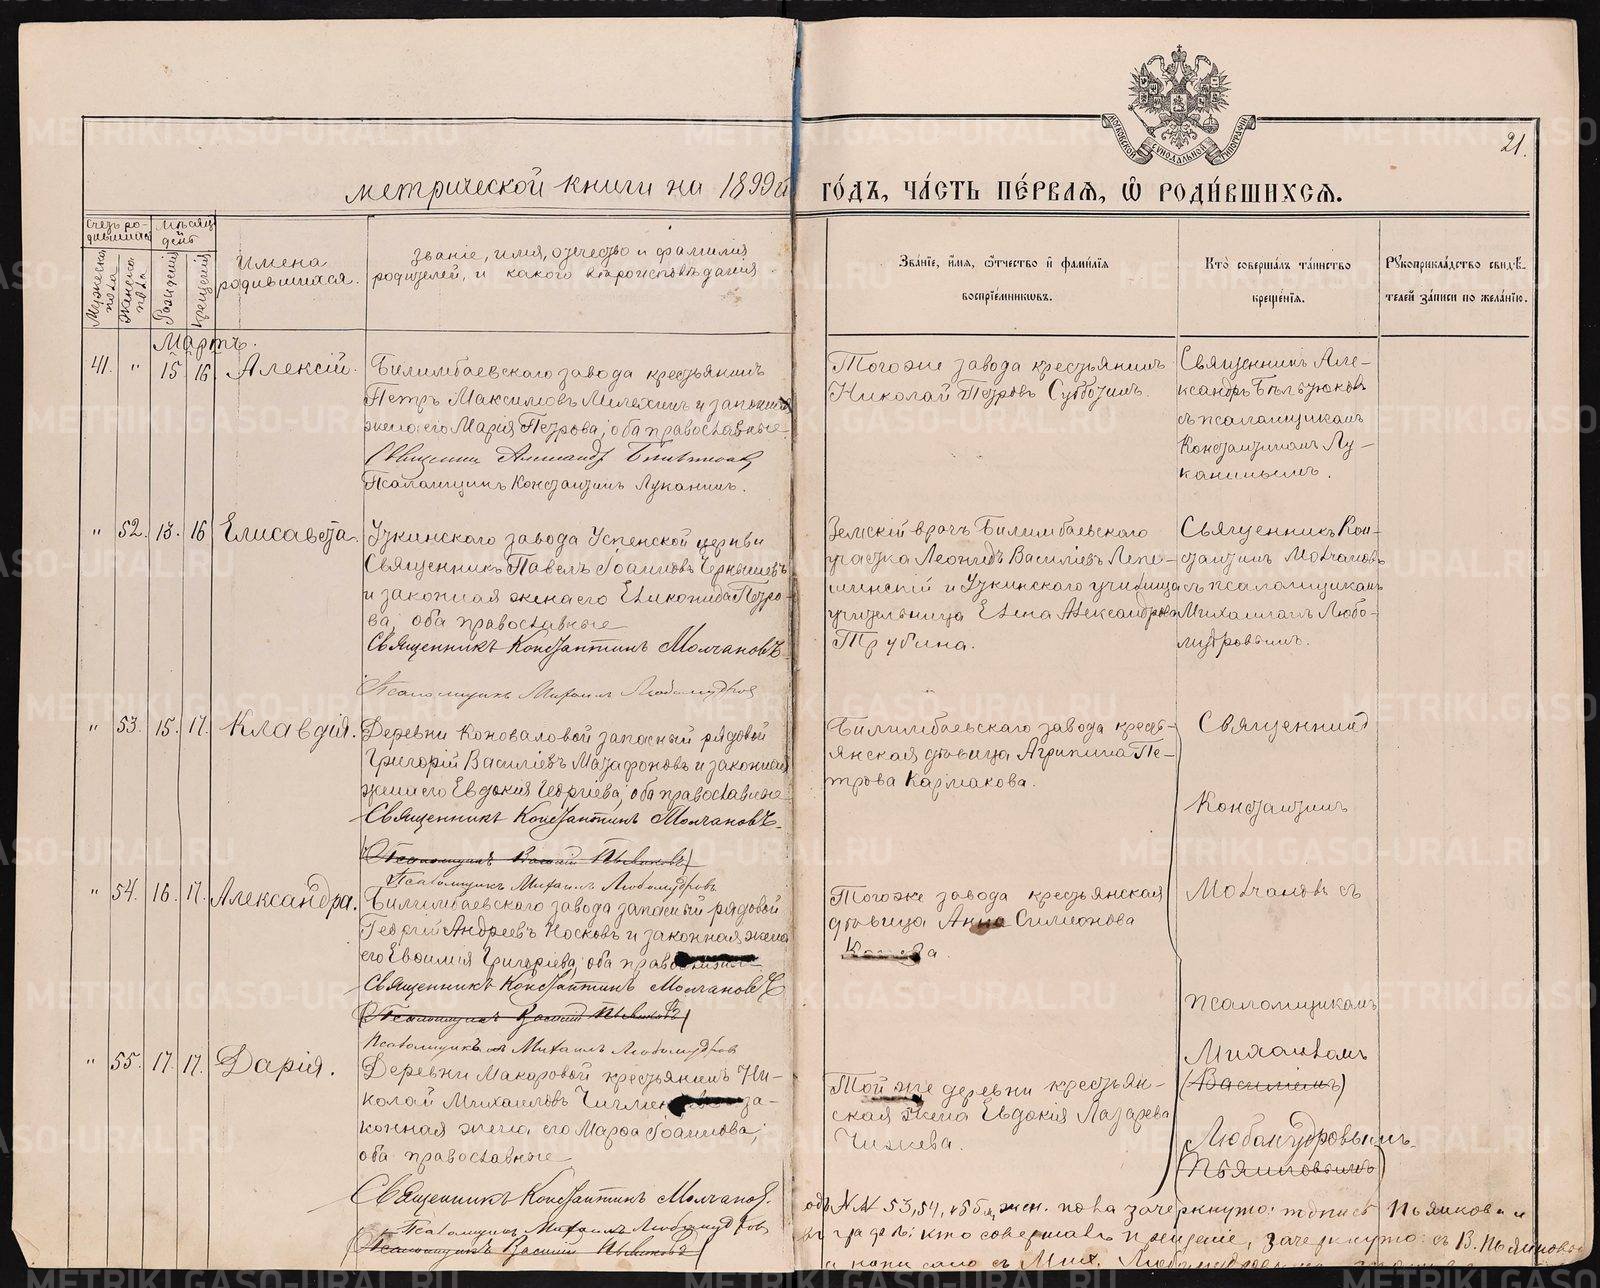 21.
МОСКОВСКОЙ СѴНОДАЛЬНОЙ ТИПОГРАФІИ
метрической книги на 1899й го́дъ, ча́сть пе́рваѧ, ѡ҆ роди́вшихсѧ.
Счетъ родившихся
Мѣсяцъ и день
Мужеска пола
Женска пола
Рожденія
Крещенія
Имена родившихся.
Званіе, имя, отчество и фамилія
родителей, и какого вѣроисповѣданія
Зва́нїе, и҆́мѧ, ѻ҆́тчество и҆ фами́лїѧ
воспрїе́мникѡвъ.
Кто̀ соверша́лъ та́инство
креще́нїѧ.
Рꙋкоприкла́дство свидѣ́-
телей за́писи по жела́нїю.
Мартъ.
41. " 15 16 Алексій.
Билимбаевскаго завода крестьянинъ
Петръ Максимовъ Мелехинъ и законная
жена его Марія Петрова, оба православные
Священникъ Александръ
Псаломщикъ Константинъ Луканинъ.
Тогоже завода крестьянинъ
Николай Петровъ Субботинъ.
Священникъ Але-
ксандръ Бѣльтюковъ
съ псаломщикомъ
Константиномъ Лу-
канинымъ.
" 52. 13. 16 Елисавета.
Уткинскаго завода Успенской церкви
Священникъ Павелъ Іоанновъ Чернышевъ
и законная жена его Еликонида Петро-
ва, оба православные
Священникъ Константинъ Молчановъ
Псаломщикъ Михаилъ Любомудровъ
Земскій врачъ Билимбаевскаго
участка Леонидъ Василіевъ Лепе-
шинскій и Уткинскаго училища
учительница Елена Александрова
Трубина.
Священникъ Кон-
стантинъ Молчановъ
съ псаломщикомъ
Михаиломъ Любо-
мудровымъ.
" 53. 15. 17. Клавдія.
Деревни Коноваловой запасный рядовой
Григорій Василіевъ Мазафоновъ и законная
жена его Евдокія Георгіева, оба православные
Священникъ Константинъ Молчановъ.
(Псаломщикъ Василій Пьянковъ)
Псаломщикъ Михаилъ Любомудровъ
Билимбаевскаго завода кресть-
янская дѣвица Агрипина Пе-
трова Кармакова.
Священникъ
Константинъ
Молчановъ съ
псаломщикомъ
Михаиломъ
(Василіемъ)
Любомудровымъ.
(Пьянковымъ)
" 54. 16. 17. Александра.
Билимбаевскаго завода запасный рядовой
Георгій Андреевъ Носковъ и законная жена
его Евфимія Григоріева, оба православные
Священникъ Константинъ Молчановъ
(Псаломщикъ Василій Пьянковъ)
Псаломщикъ Михаилъ Любомудровъ
Тогоже завода крестьянская
дѣвица Анна Симеонова
" 55. 17. 17. Дарія.
Деревни Макаровой крестьянинъ Ни-
колай Михаиловъ за-
конная жена его Марфа Іоаннова,
оба православные
Священникъ Константинъ Молчановъ.
Псаломщикъ Михаилъ Любомудровъ
(Псаломщикъ Василій Пьянковъ)
Той же деревни крестьян-
ская жена Евдокія Лазарева
Чижева.
№№ 53, 54, и 55 жен. пола зачеркнуто: подпись Пьянкова и
въ графѣ: кто совершалъ крещеніе, зачеркнуто: съ В. Пьянковы
Мих.